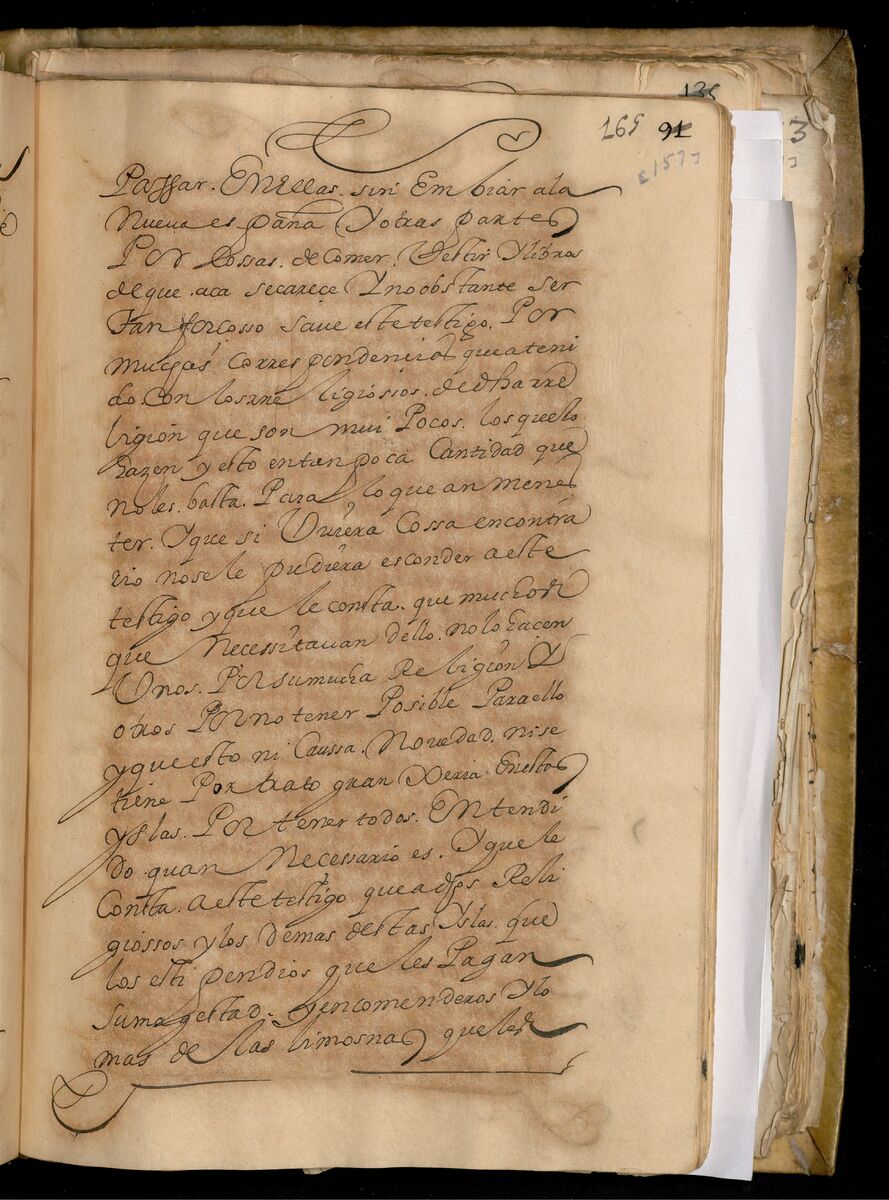 135
165 91
[157]
3
Passar. En ellas. sin Embiar ala
Nueva españa Y otras partes
Por Cossas. de Comer. Vestir Y libros
de que aca se carece Y no obstante ser
Tan forcosso save este testigo. Por
muchas Correspondencias que a teni
do. Con los rre ligiossos. de dha rre
ligión que son mui Pocos. los que lo
hazen y esto en tan poca Cantidad que
no les. basta. Para lo que an menes
ter. Y que si Uviera Cossa en contra
rio no se le pudiera esconder a este
testigo y que le consta. que muchos
que Necessitavan dello. no lo hacen
Unos. Por su mucha Religión Y
otros Por no tener Posible Para ello
y que esto ni Caussa. Novedad. ni se
tiene Por trato gran xeria En estas
yslas. Por tener todos. Entendi
do quan Necessario es. Y que le
Consta. a este testigo que a dhos Reli
giossos y los demas destas Yslas. que
los estipendios que les Pagan
su magestad. Y encomenderos Y lo
mas de las limosnas que les